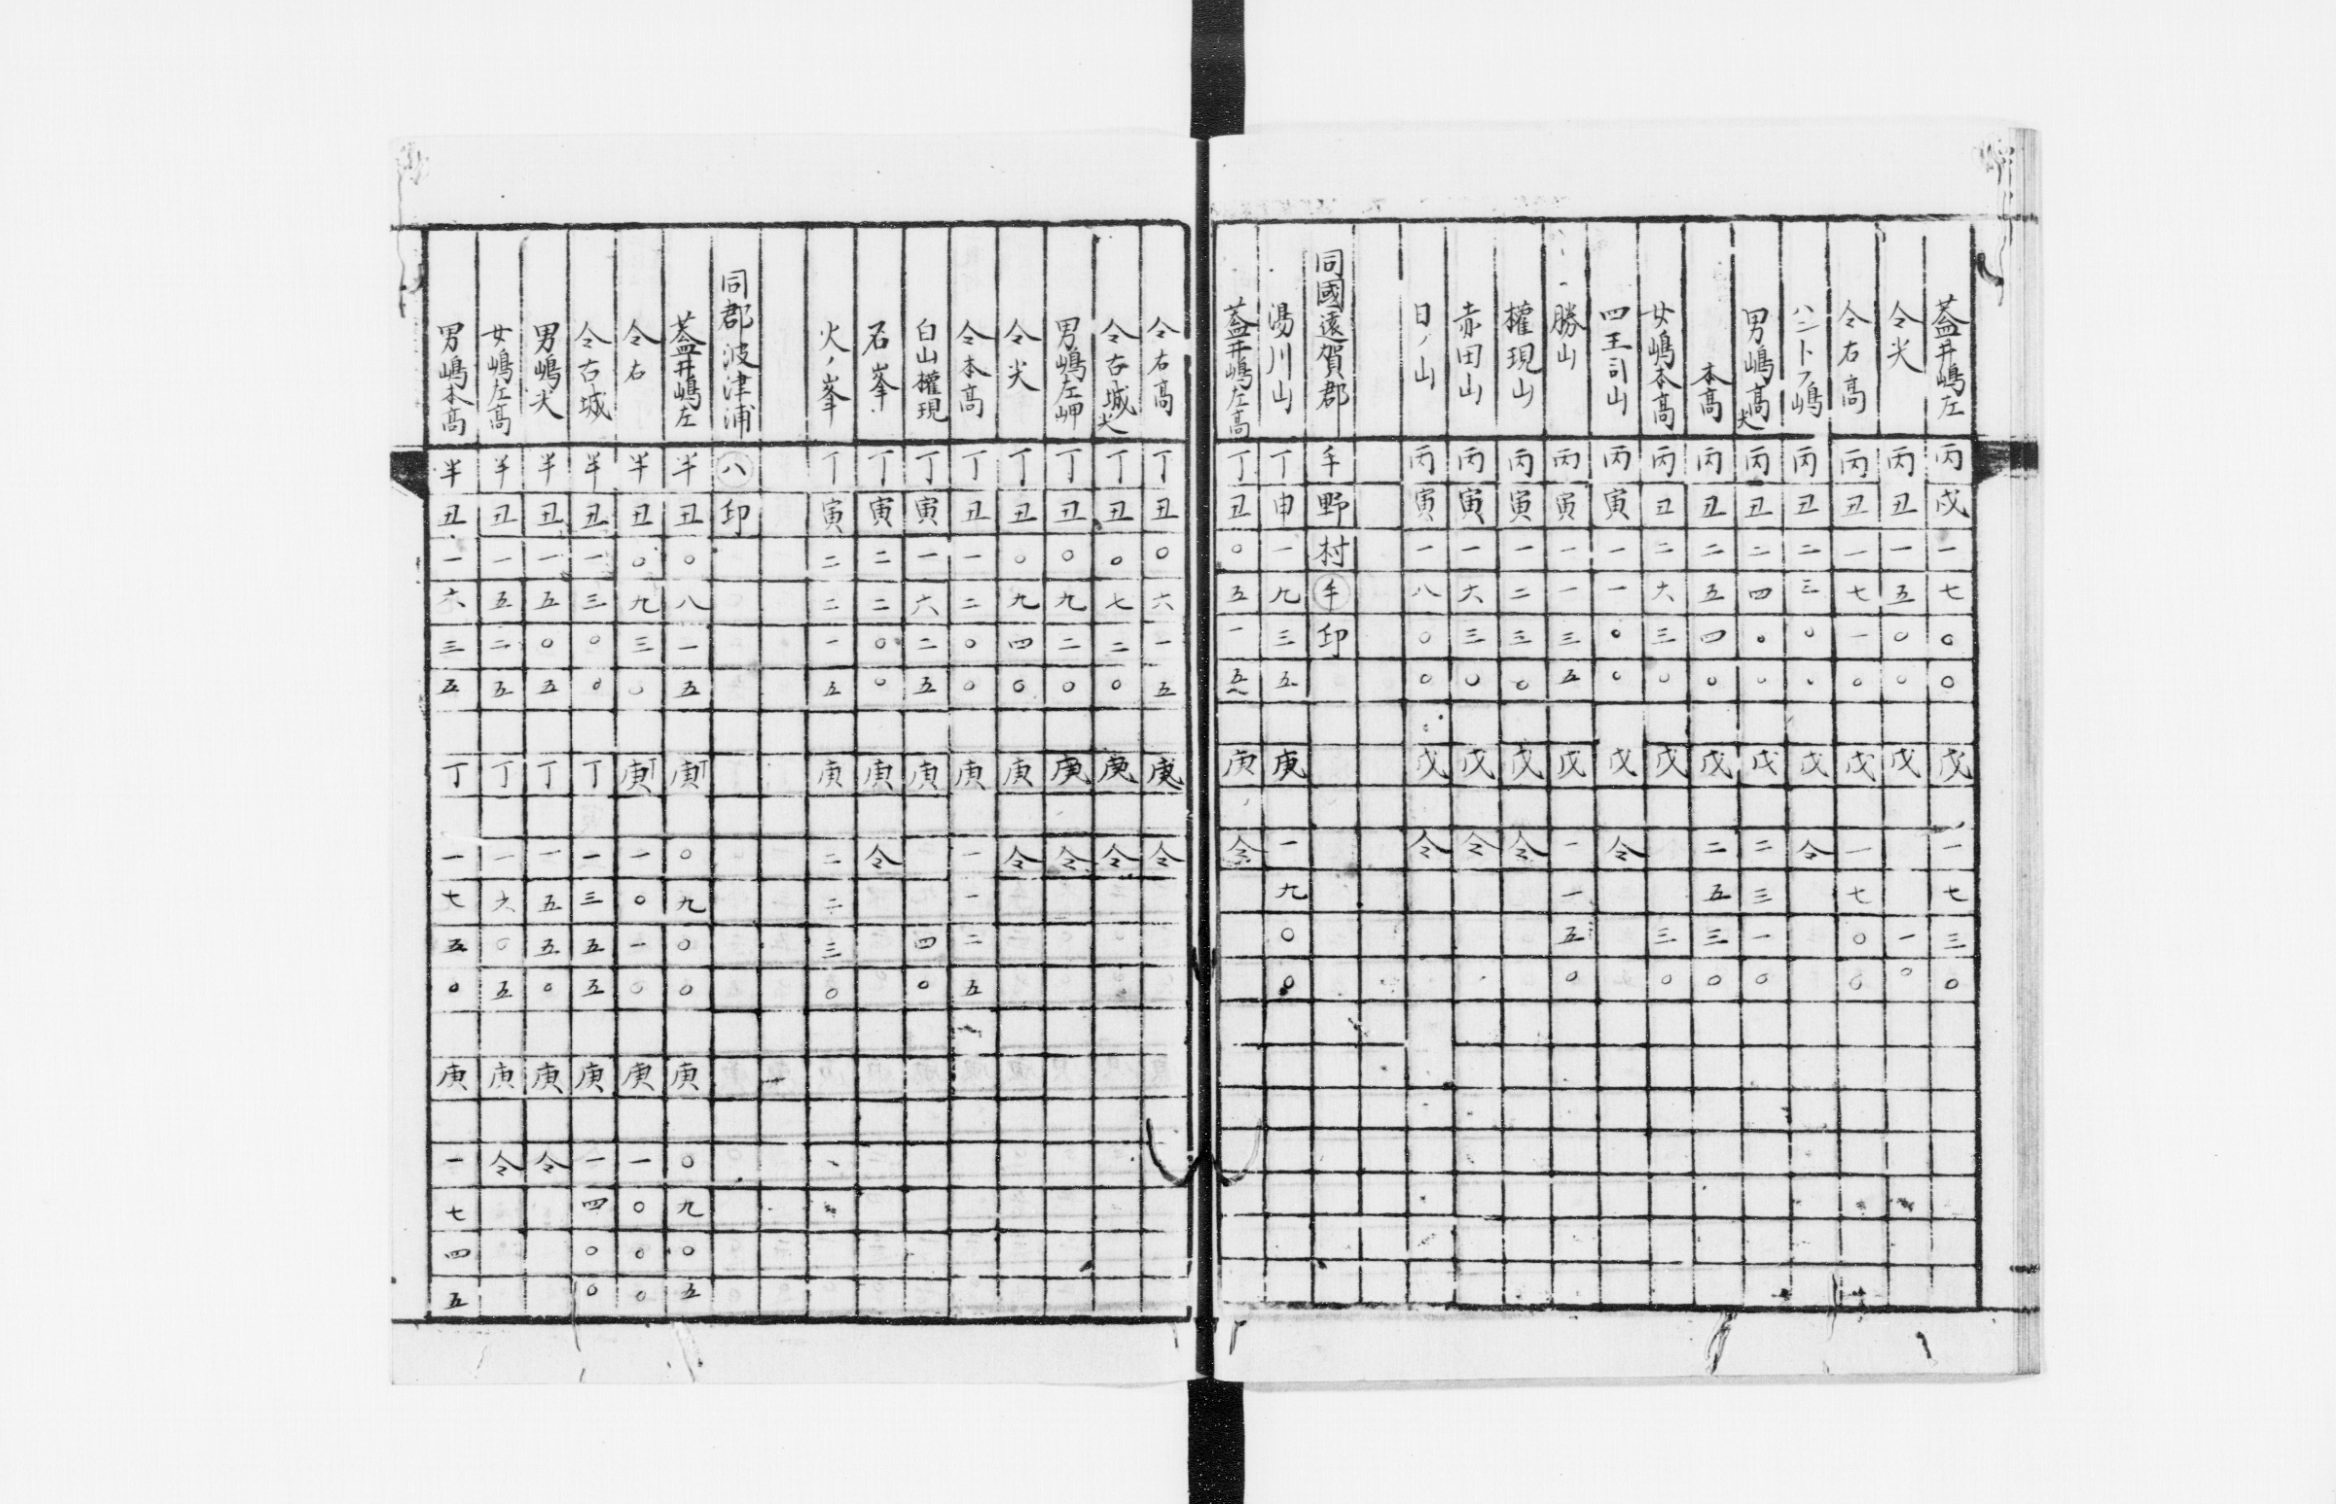 蓋井嶋左 丙戌一七〇〇 戊 一七三〇
仝尖 丙丑一五〇〇 戊 一〇
仝右高 丙丑一七一〇 戊 一七〇〇
ハニトフ嶋 丙丑二三〇〇 戊 仝
男嶋高尖 丙丑二四〇〇 戊 二三一〇
本高 丙丑二五四〇 戊 二五三〇
女嶋本高 丙丑二六三〇 戊 三〇
四王司山 丙寅一一〇〇 戊 仝
勝山 丙寅一一三五 戊 一一五〇
權現山 丙寅一二三〇 戊 仝
赤田山 丙寅一六三〇 戊 仝
日ノ山 丙寅一八〇〇 戊 仝
同國遠賀郡 手野村手印
湯川山 丁申一九三五 庚 一九〇〇
蓋井嶋左高 丁丑〇五一五 庚 仝
仝右高 丁丑〇六一五 庚 仝
仝右城尖 丁丑〇七二〇 庚 仝
男嶋左岬 丁丑〇九二〇 庚 仝
仝尖 丁丑〇九四〇 庚 仝
仝本高 丁丑一二〇〇 庚 一一二五
白山權現 丁寅一六二五 庚 四〇
石峯 丁寅二二〇〇 庚 仝
火ノ峯 丁寅二二一五 庚 二二三〇
同郡波津浦 八印
蓋井嶋左 半丑〇八一五 庚丁 〇九〇〇 庚 〇九〇五
仝右 半丑〇九三〇 庚丁 一〇一〇 庚 一〇〇〇
仝右城 半丑一三〇〇 丁 一三五五 庚 一四〇〇
男嶋尖 半丑一五〇五 丁 一五五〇 庚 仝
女嶋左高 半丑一五二五 丁 一六〇五 庚 仝
男嶋本高 半丑一六三五 丁 一七五〇 庚 一七四五